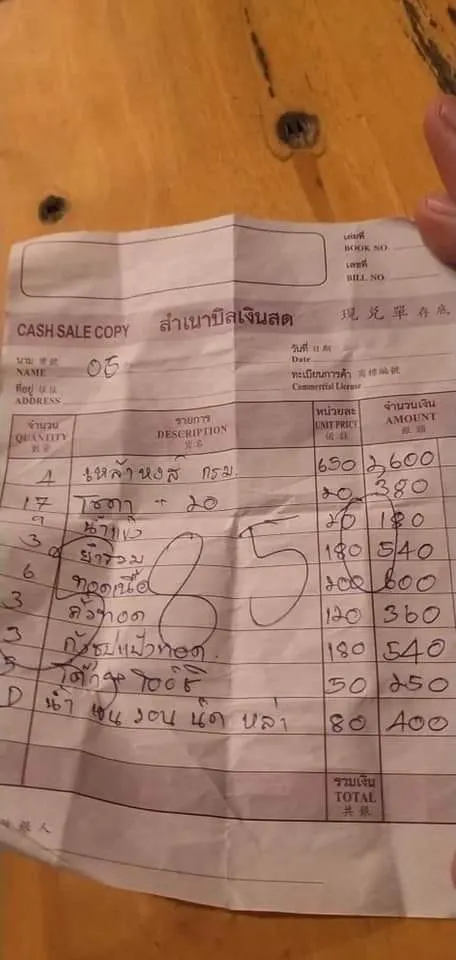 เล่มที่
BOOK NO.
เลขที่
BILL NO.
CASH SALE COPY สำเนาบิลเงินสด 現兌單存底
นาม 寶號
NAME 05
วันที่ 日期
Date
ที่อยู่ 住址
ADDRESS
ทะเบียนการค้า 商標編號
Commercial License
จำนวน รายการ หน่วยละ จำนวนเงิน
QUANTITY DESCRIPTION UNIT PRICE AMOUNT
數量 貨名 價錢 銀額
4 เหล้าหงส์ กรม. 650 2,600
17 โซดา + 20 20 380
9 น้ำแข็ง 20 180
3 ยำรวม 180 540
6 ทอดเนื้อ 200 600
3 ถั่วทอด 120 360
3 กุ้งชุปแป้งทอด 180 540
5 50 250
น้ำ 80 400
85
รวมเงิน
TOTAL
共銀
收銀人